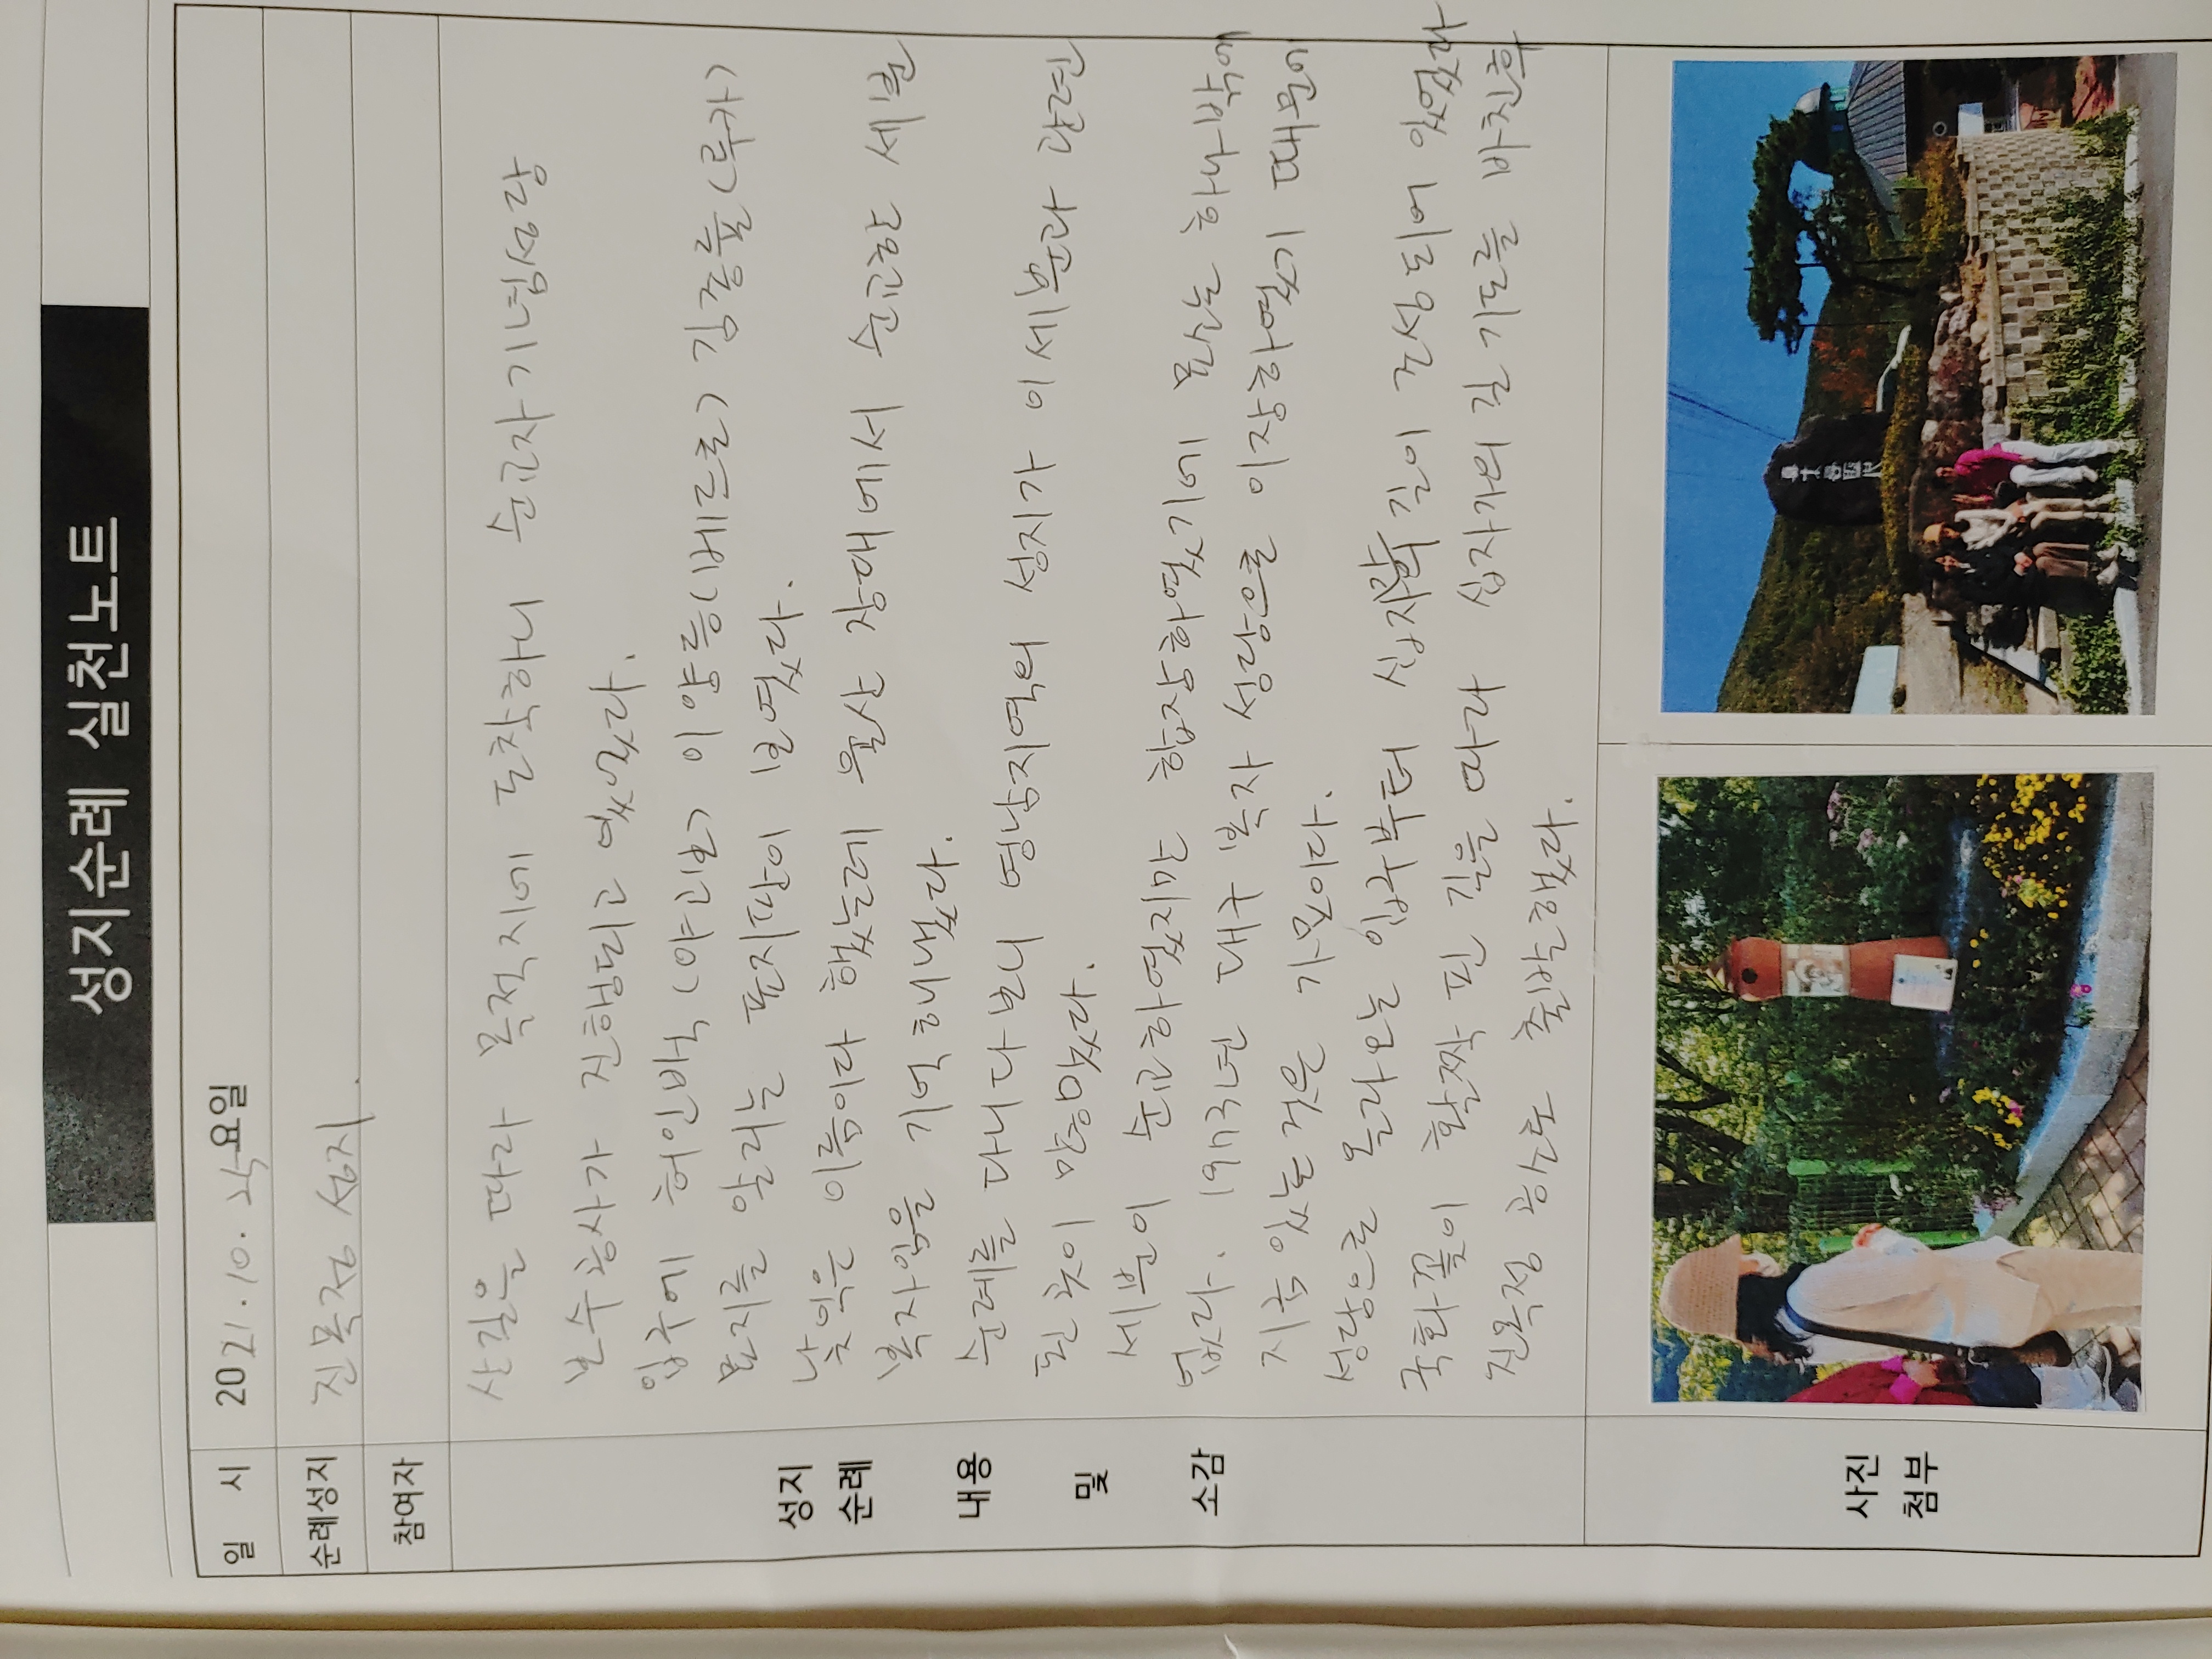 성지순례 실천노트
일 시 2021.10.25 요일
순례성지 진목정 성지.
참여자
성지 순례 내용 및 소감
산길을 따라 목적지에 도착하니 순교자기념성당
보수공사가 진행되고 있었다.
입구에 허인백(야고보) 이양등(베드로) 김종륜(루카)
묘지를 알리는 표지판이 보였다.
낯익은 이름이다 했는데 울산 장대에서 순교한 세분
복자임을 기억해냈다.
순례를 다니다보니 영남지역의 성지가 이세분과 관련
된 곳이 많았다.
세분이 순교하였지만 합장하였기에 묘소는 하나밖에
없다. 1973년 대구 복자 성당으로 이장하였기 때문에
지금 있는 것은 가묘이다.
성당으로 올라오는 입구부터 길이 조성되어 있었다
국화꽃이 활짝 핀 길을 따라 십자가의 길 기도를 바친후
진목정 공소로 출발했다.
사진 첨부